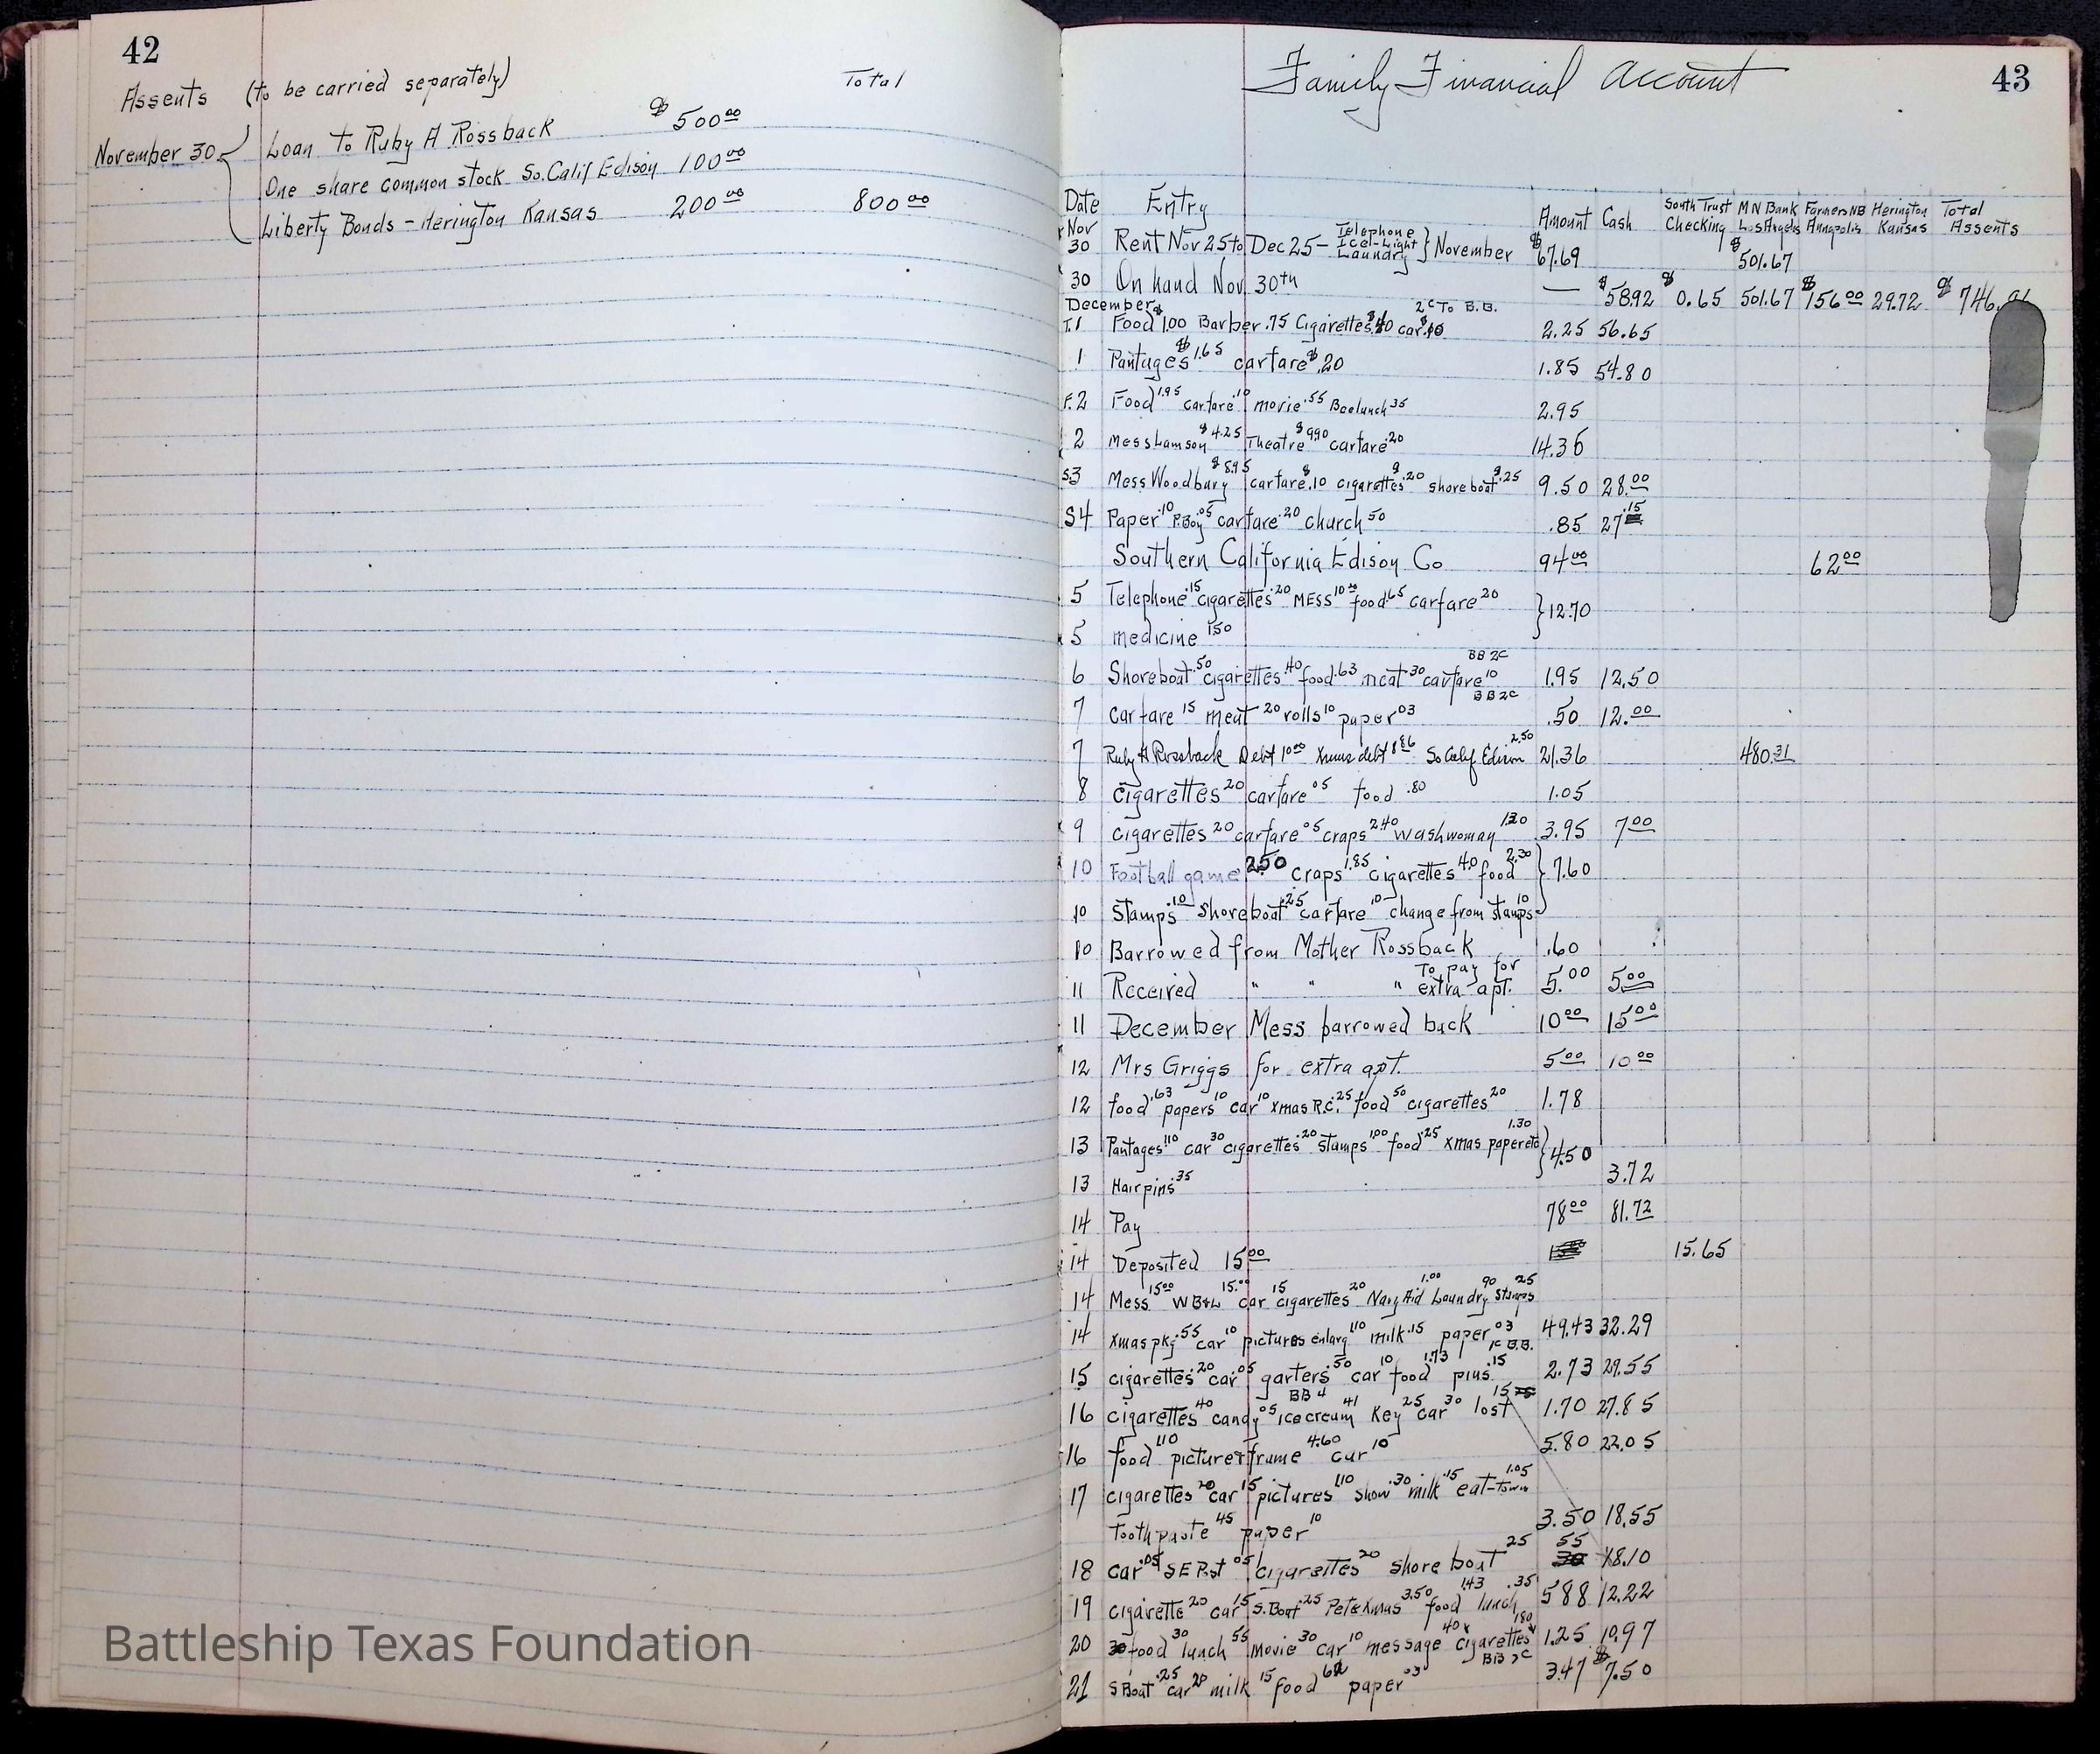 42
Assents (to be carried separately) Total
November 30 Loan to Ruby A Rossback $500.00
One share common stock So. Calif Edison 100.00
Liberty Bonds - Herington Kansas 200.00 800.00
Battleship Texas Foundation
Family Financial Account 43
Date Entry Amount Cash South Trust Checking M N Bank Los Angeles Farmers NB Annapolis Herington Kansas Total Assents
Nov 30 Rent Nov 25 to Dec 25 - Telephone Ice-Light Laundry } November $67.69 $501.67
30 On hand Nov. 30th — $58.92 $0.65 501.67 $156.00 29.72 $746.
December 2c To B.B.
T.1 Food $1.00 Barber .75 Cigarettes $.40 car $.10 2.25 56.65
1 Pantages $1.65 carfare $.20 1.85 54.80
F.2 Food 1.95 carfare .10 movie .55 Boelunch 35 2.95
2 Mess Lamson $4.25 Theatre $9.90 carfare .20 14.36
S3 Mess Woodbury $8.95 carfare $.10 cigarettes $.20 shoreboat $.25 9.50 28.00
S4 Paper .10 P.Boy .05 carfare .20 church 50 .85 27.15
Southern California Edison Co 94.00 62.00
5 Telephone .15 cigarettes .20 MESS 10.00 food .65 carfare 20 } 12.70
5 medicine 1.50
BB 2C
6 Shoreboat .50 cigarettes .40 food .63 meat .30 carfare 10 1.95 12.50
BB 2C
7 carfare 15 meat 20 rolls 10 paper 03 .50 12.00
7 Ruby A Rossback Debt 10.00 Xmas debt 8.86 So Calif Edison 2.50 21.36 480.31
8 cigarettes 20 carfare 05 food .80 1.05
9 cigarettes 20 carfare 05 craps 2.40 washwoman 1.30 3.95 7.00
10 Football game 2.50 craps 1.85 cigarettes 40 food 2.30 } 7.60
10 Stamps .10 shoreboat .25 carfare 10 change from stamps 10
10 Barrowed from Mother Rossback .60
11 Received " " " To pay for extra apt. 5.00 5.00
11 December Mess barrowed back 10.00 15.00
12 Mrs Griggs for extra apt. 5.00 10.00
12 food .63 papers 10 car 10 xmas R.C. .25 food 50 cigarettes 20 1.78
13 Pantages 1.10 car 30 cigarettes .20 stamps 1.00 food .25 xmas paper etc 1.30 } 4.50
13 Hairpins 35 3.72
14 Pay 78.00 81.72
14 Deposited 15.00 15.65
14 Mess 15.00 W B&L 15.00 car 15 cigarettes 20 Navy Aid 1.00 Laundry 90 Stamps 25
14 xmas pkg .55 car 10 pictures enlarg 1.10 milk .15 paper 03 1c B.B. 49.43 32.29
15 cigarettes .20 car .05 garters .50 car 10 food 1.73 pins .15 2.73 29.55
16 cigarettes 40 candy 05 BB 4 ice cream 41 Key 25 car 30 lost 15 1.70 27.85
16 food 1.10 picture & frame 4.60 car 10 5.80 22.05
17 cigarettes 20 car 15 pictures 1.10 show .30 milk .15 eat-Town 1.05
Toothpaste 45 paper 10 3.50 18.55
18 car .05 S E Post 05 cigarettes 20 shore boat 25 55 18.10
19 cigarette 20 car 15 S. Boat .25 Pete Xmas 3.50 food 1.43 lunch .35 5 88 12.22
20 food 30 lunch 55 movie 30 car 10 message cigarettes 1.25 10.97
BB 2C
21 S Boat .25 car 20 milk 15 food paper 03 3.47 $7.50